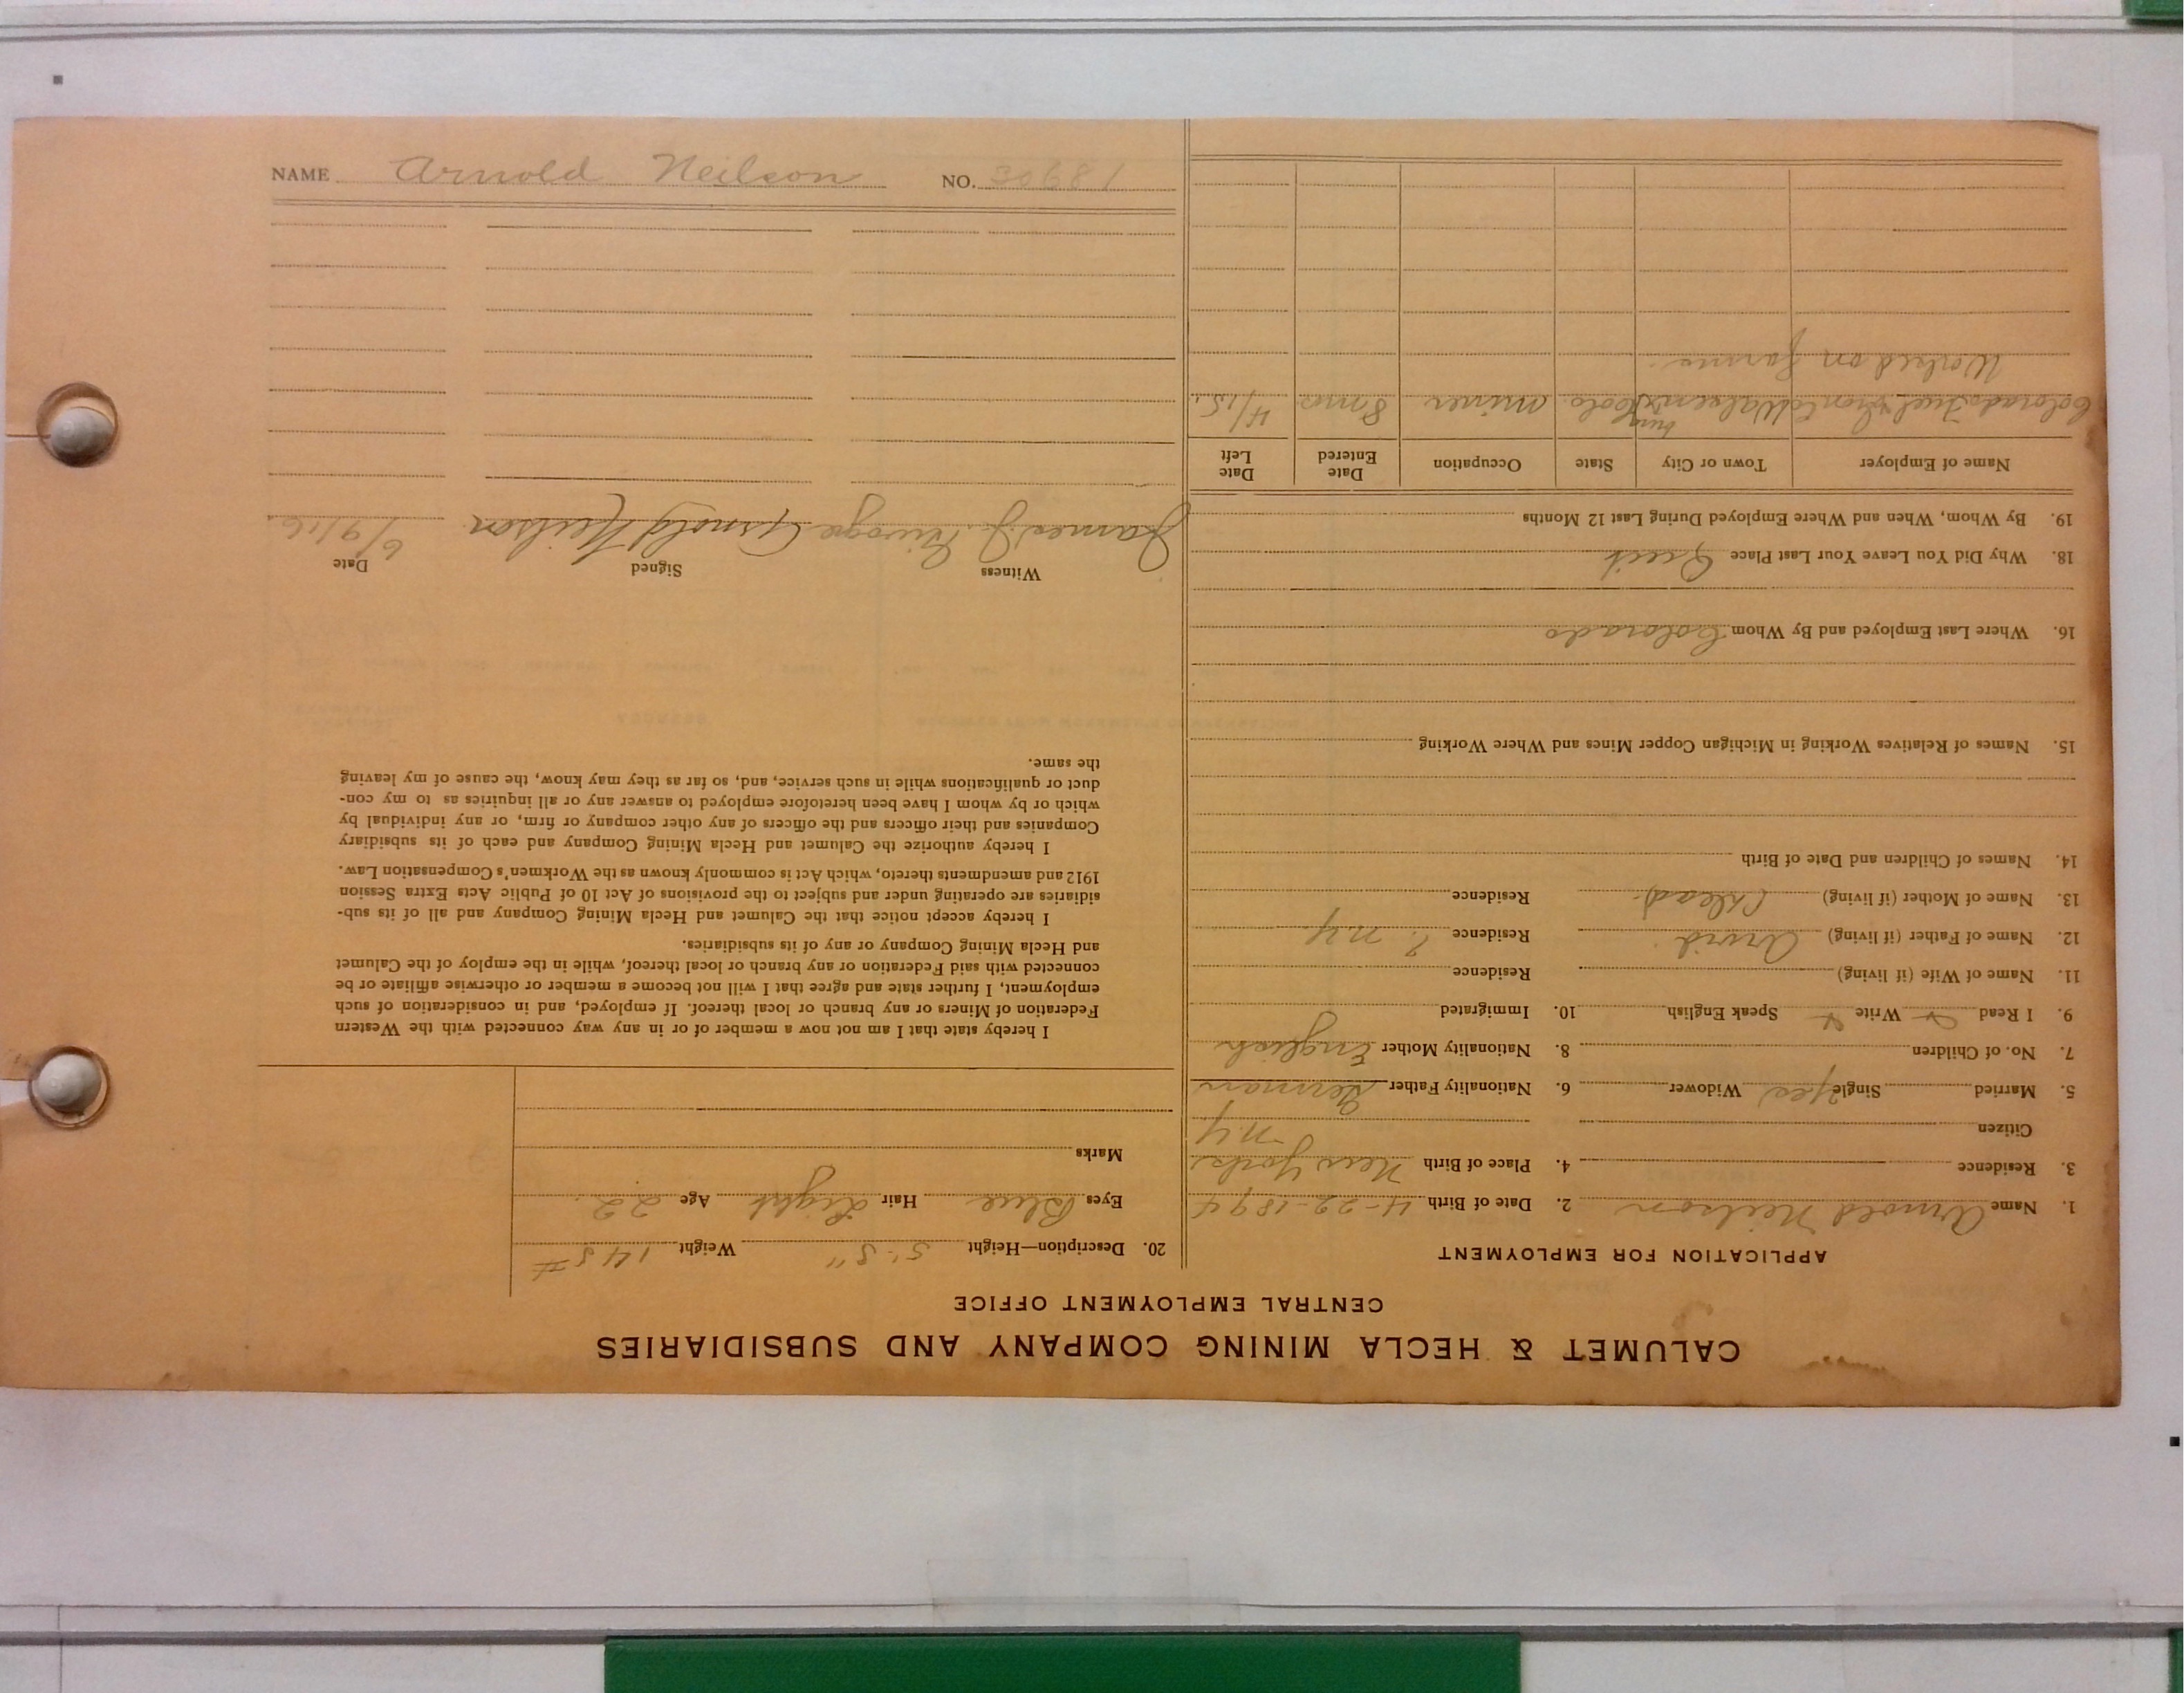 CALUMET & HECLA MINING COMPANY AND SUBSIDIARIES
CENTRAL EMPLOYMENT OFFICE
APPLICATION FOR EMPLOYMENT
1. Name Arnold Neilson 2. Date of Birth 4-22-1894
3. Residence 4. Place of Birth New York
Citizen N.Y
5. Married Single Yes Widower 6. Nationality Father German
7. No. of Children 8. Nationality Mother English
9. I Read Write Speak English 10. Immigrated
11. Name of Wife (if living) Residence
12. Name of Father (if living) Arvid Residence ? N.Y
13. Name of Mother (if living) (Dead) Residence
14. Names of Children and Date of Birth
15. Names of Relatives Working in Michigan Copper Mines and Where Working
16. Where Last Employed and By Whom Colorado
18. Why Did You Leave Your Last Place Quit
19. By Whom, When and Where Employed During Last 12 Months
Name of Employer Town or City State Occupation Date Entered Date Left
Colorado Fuel & Iron Co Colo miner 8 mos 4/15.
Worked on farms.
20. Description—Height 5'-5" Weight 145 #
Eyes Blue Hair Light Age 22.
Marks
I hereby state that I am not now a member of or in any way connected with the Western
Federation of Miners or any branch or local thereof. If employed, and in consideration of such
employment, I further state and agree that I will not become a member or otherwise affiliate or be
connected with said Federation or any branch or local thereof, while in the employ of the Calumet
and Hecla Mining Company or any of its subsidiaries.
I hereby accept notice that the Calumet and Hecla Mining Company and all of its sub-
sidiaries are operating under and subject to the provisions of Act 10 of Public Acts Extra Session
1912 and amendments thereto, which Act is commonly known as the Workmen's Compensation Law.
I hereby authorize the Calumet and Hecla Mining Company and each of its subsidiary
Companies and their officers and the officers of any other company or firm, or any individual by
which or by whom I have been heretofore employed to answer any or all inquiries as to my con-
duct or qualifications while in such service, and, so far as they may know, the cause of my leaving
the same.
Witness Signed Date
James J. Arnold Neilson 6/9/16.
NAME Arnold Neilson NO. 30681